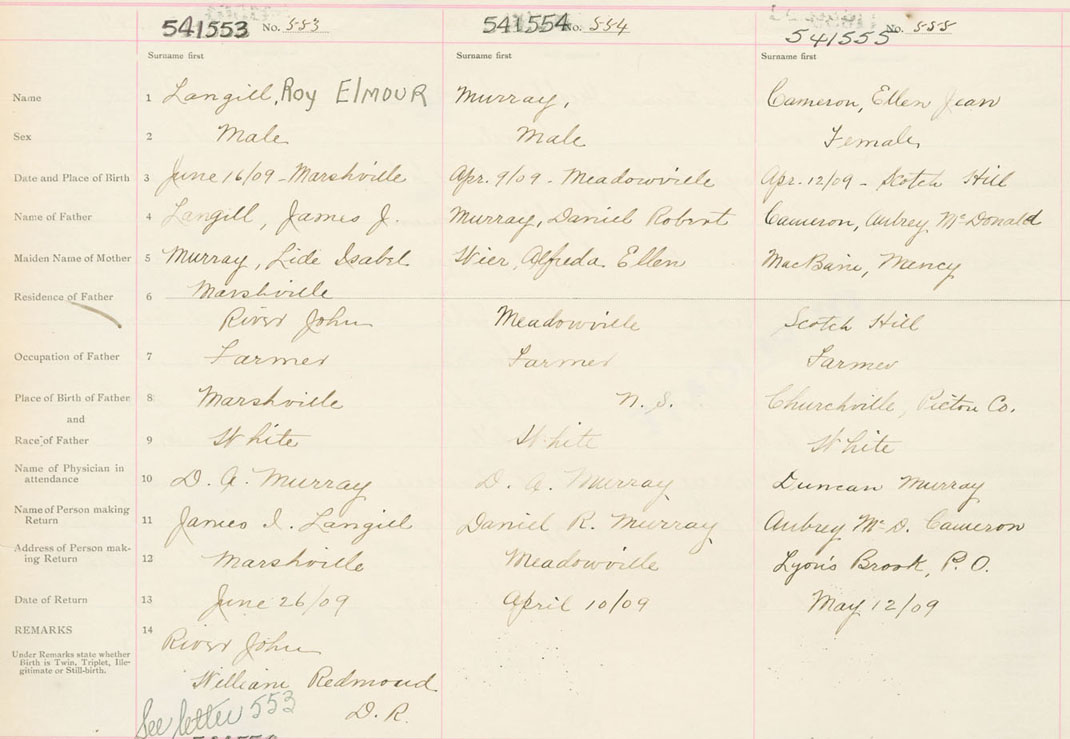 541553 No. 553 541554 No. 554 541555 No. 555
Surname first Surname first Surname first
Name 1 Langill, Roy Elmour Murray, Cameron, Ellen Jean
Sex 2 Male Male Female
Date and Place of Birth 3 June 16/09 - Marshville Apr. 9/09 - Meadowville Apr. 12/09 - Scotch Hill
Name of Father 4 Langill, James J. Murray, Daniel Robert Cameron, Aubrey McDonald
Maiden Name of Mother 5 Murray, Lide Isabel Wier, Alfreda Ellen MacBain, Nancy
Residence of Father 6 Marshville
River John Meadowville Scotch Hill
Occupation of Father 7 Farmer Farmer Farmer
Place of Birth of Father 8 Marshville N. S. Churchville, Pictou Co.
and
Race of Father 9 White White White
Name of Physician in
attendance 10 D. A. Murray D. A. Murray Duncan Murray
Name of Person making
Return 11 James J. Langill Daniel R. Murray Aubrey McD. Cameron
Address of Person mak-
ing Return 12 Marshville Meadowville Lyon's Brook, P.O.
Date of Return 13 June 26/09 April 10/09 May 12/09
REMARKS 14 River John
Under Remarks state whether
Birth is Twin, Triplet, Ille-
gitimate or Still-birth.
William Redmond
D. R.
See letter 553